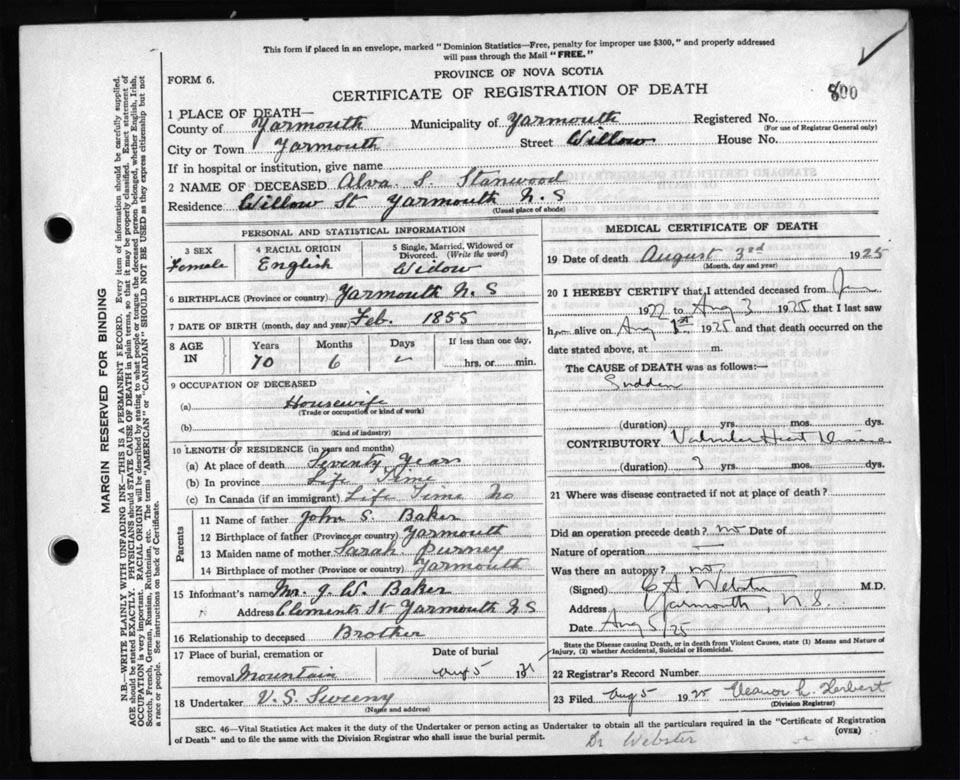 This form if placed in an envelope, marked "Dominion Statistics—Free, penalty for improper use $300," and properly addressed
will pass through the Mail "FREE."
FORM 6.
PROVINCE OF NOVA SCOTIA
CERTIFICATE OF REGISTRATION OF DEATH
800
1 PLACE OF DEATH—
County of Yarmouth Municipality of Yarmouth Registered No.
(For use of Registrar General only)
City or Town Yarmouth Street Willow House No.
If in hospital or institution, give name
2 NAME OF DECEASED Alva. S. Stanwood
Residence Willow St Yarmouth N. S
(Usual place of abode)
PERSONAL AND STATISTICAL INFORMATION
3 SEX Female
4 RACIAL ORIGIN English
5 Single, Married, Widowed or Divorced. (Write the word) Widow
6 BIRTHPLACE (Province or country) Yarmouth N. S
7 DATE OF BIRTH (month, day and year) Feb. 1855
8 AGE IN Years 70 Months 6 Days If less than one day, hrs. or min.
9 OCCUPATION OF DECEASED
(a) Housewife
(Trade or occupation or kind of work)
(b)
(Kind of industry)
10 LENGTH OF RESIDENCE (in years and months)
(a) At place of death Seventy Years
(b) In province Life Time
(c) In Canada (if an immigrant) Life Time No
Parents
11 Name of father John S. Baker
12 Birthplace of father (Province or country) Yarmouth
13 Maiden name of mother Sarah. Purney
14 Birthplace of mother (Province or country) Yarmouth
15 Informant's name Mr. J. W. Baker
Address Clements St Yarmouth N S
16 Relationship to deceased Brother
17 Place of burial, cremation or removal Mountain
Date of burial Aug 5 19
18 Undertaker V. S. Sweeny
(Name and address)
MEDICAL CERTIFICATE OF DEATH
19 Date of death August 3rd 1925
(Month, day and year)
20 I HEREBY CERTIFY that I attended deceased from Jan
1922 to Aug 3 1925 that I last saw
her alive on Aug 1st 1925 and that death occurred on the
date stated above, at m.
The CAUSE of DEATH was as follows:—
Sudden
(duration) yrs. mos. dys.
CONTRIBUTORY Valvular Heart Disease
(duration) 3 yrs. mos. dys.
21 Where was disease contracted if not at place of death?
Did an operation precede death? no Date of
Nature of operation —
Was there an autopsy? no,
(Signed) C A. Webster M.D.
Address Yarmouth, N. S.
Date Aug 5/25
State the Disease causing Death, or in death from Violent Causes, state (1) Means and Nature of
Injury, (2) whether Accidental, Suicidal or Homicidal.
22 Registrar's Record Number
23 Filed Aug 5 1925 Eleanor L. Herbert
(Division Registrar)
SEC. 46—Vital Statistics Act makes it the duty of the Undertaker or person acting as Undertaker to obtain all the particulars required in the "Certificate of Registration
of Death" and to file the same with the Division Registrar who shall issue the burial permit.
(OVER)
Dr Webster
MARGIN RESERVED FOR BINDING
N.B.—WRITE PLAINLY WITH UNFADING INK—THIS IS A PERMANENT RECORD. Every item of information should be carefully supplied.
AGE should be stated EXACTLY. PHYSICIANS should STATE CAUSE OF DEATH in plain terms, so that it may be properly classified. Exact statement of
OCCUPATION is very important. RACIAL ORIGIN will be described by stating to what people or tongue the deceased person belonged, whether English, Irish,
Scotch, French, German, Russian, Ruthenian, etc. The terms "AMERICAN" or "CANADIAN" SHOULD NOT BE USED as they express citizenship but not
a race or people. See instructions on back of Certificate.